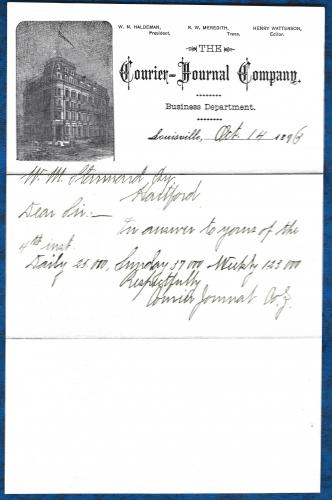 W. N. HALDEMAN, President. R. W. MEREDITH, Treas. HENRY WATTERSON, Editor.
THE
Courier-Journal Company.
Business Department.
Louisville, Oct. 14 1896
W. M.
Hartford.
Dear Sir:—
In answer to yours of the
4th inst.
Daily 25.000, Sunday 37 000 Weekly 123 000
Respectfully
Courier Journal Co.